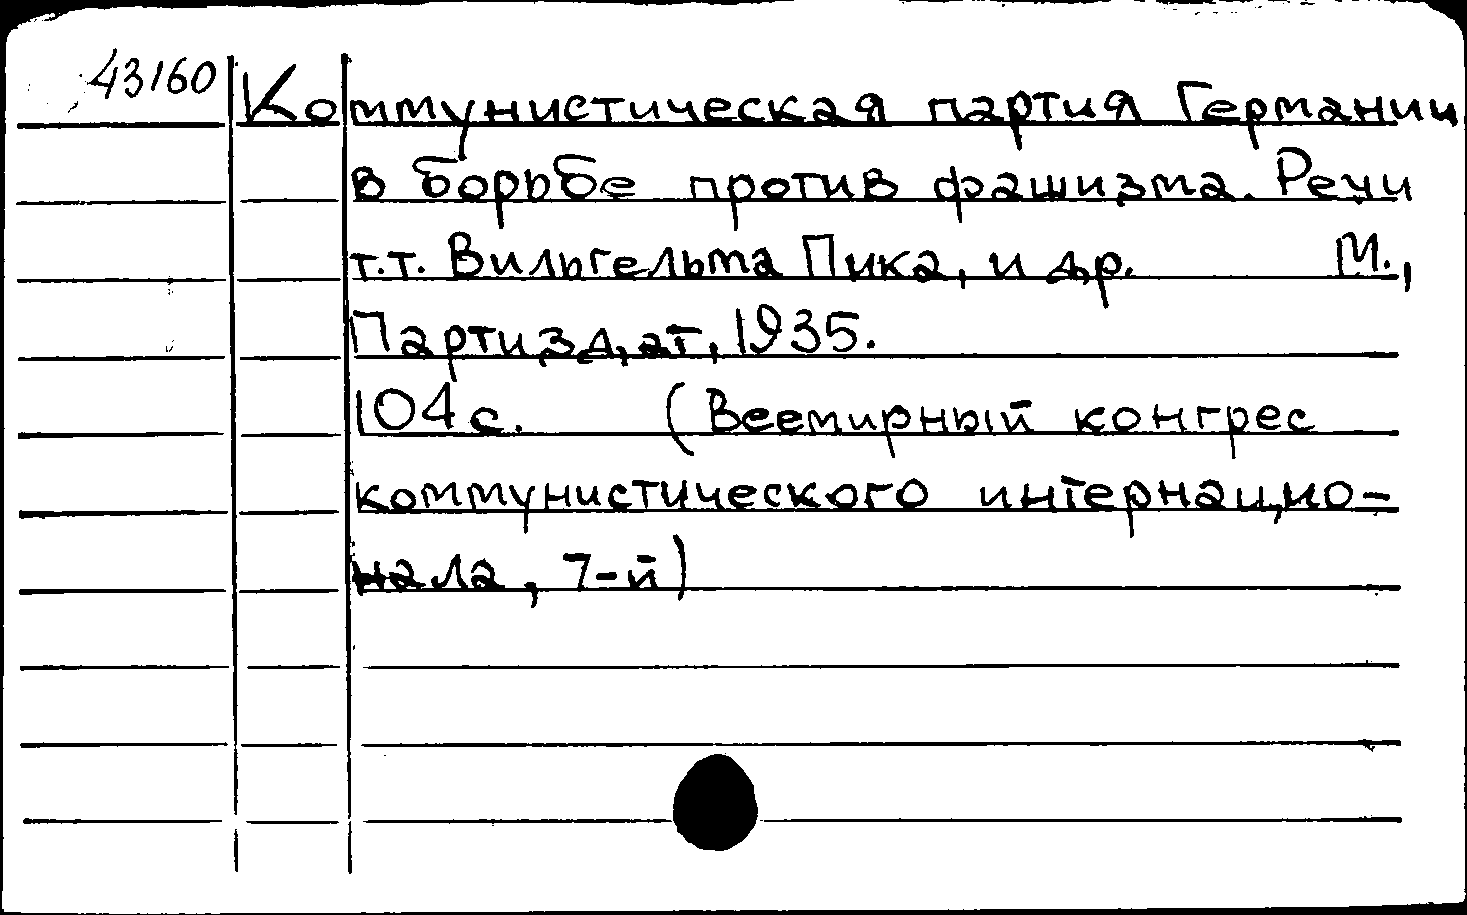 43160 Коммунистическая партия Германии
в борьбе против фашизма. Речи
т.т. Вильгельма Пика, и др. М.,
Партиздат, 1935.
104 с. (Всемирный конгрес
коммунистического интернацио-
нала, 7-й)